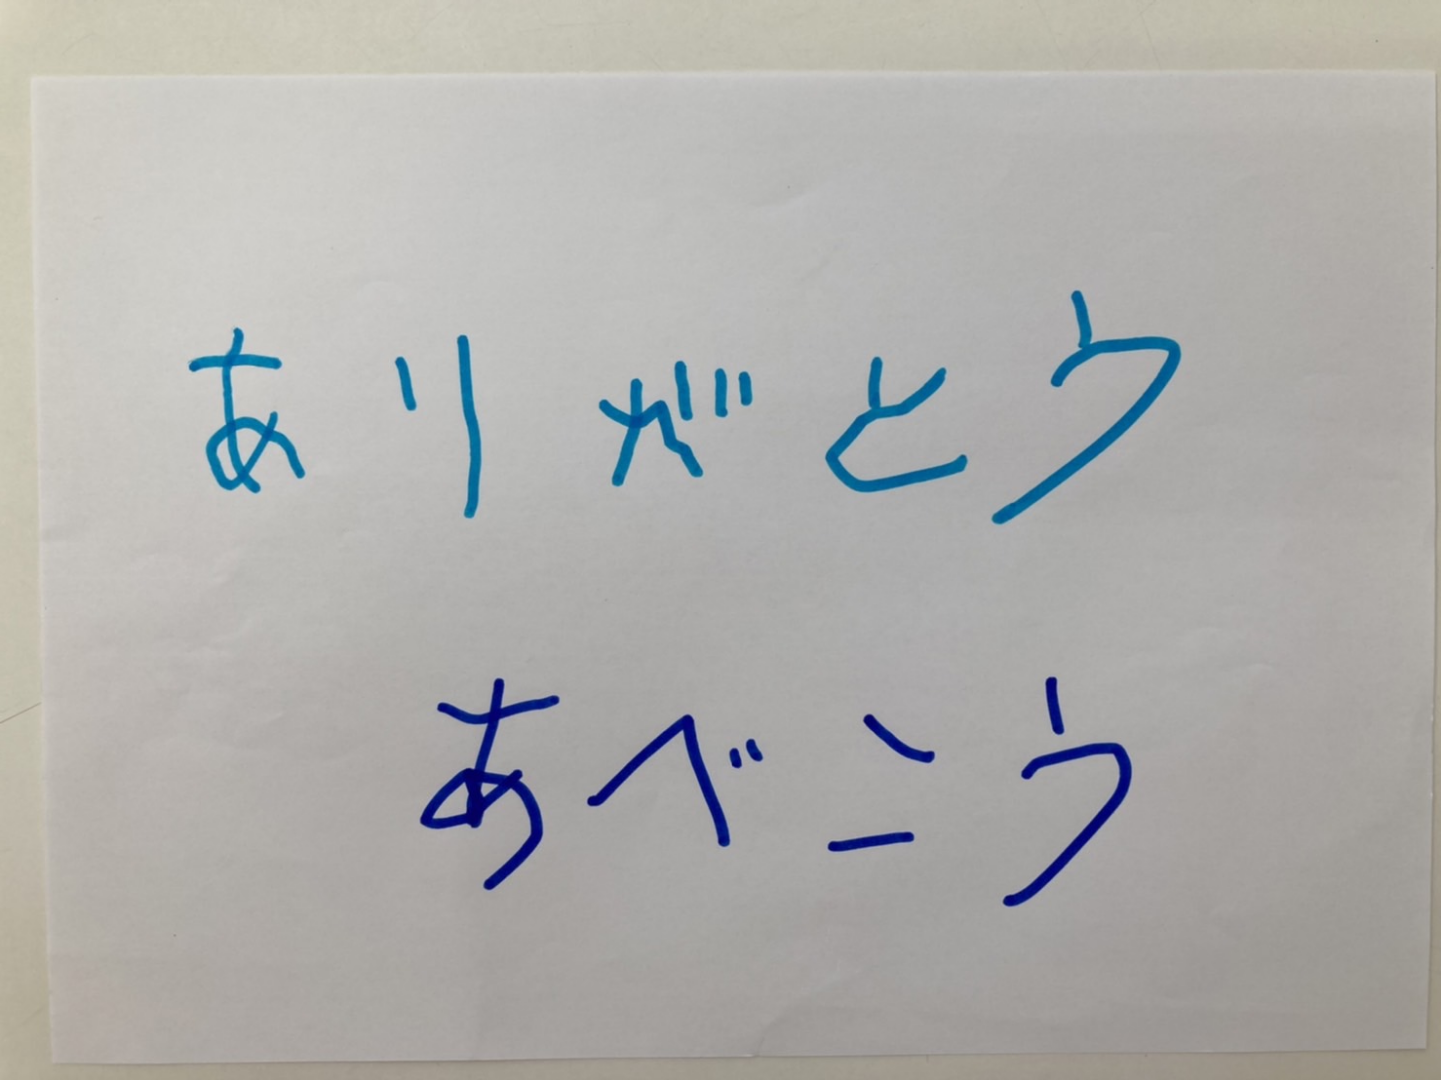 ありがとう
あべこう